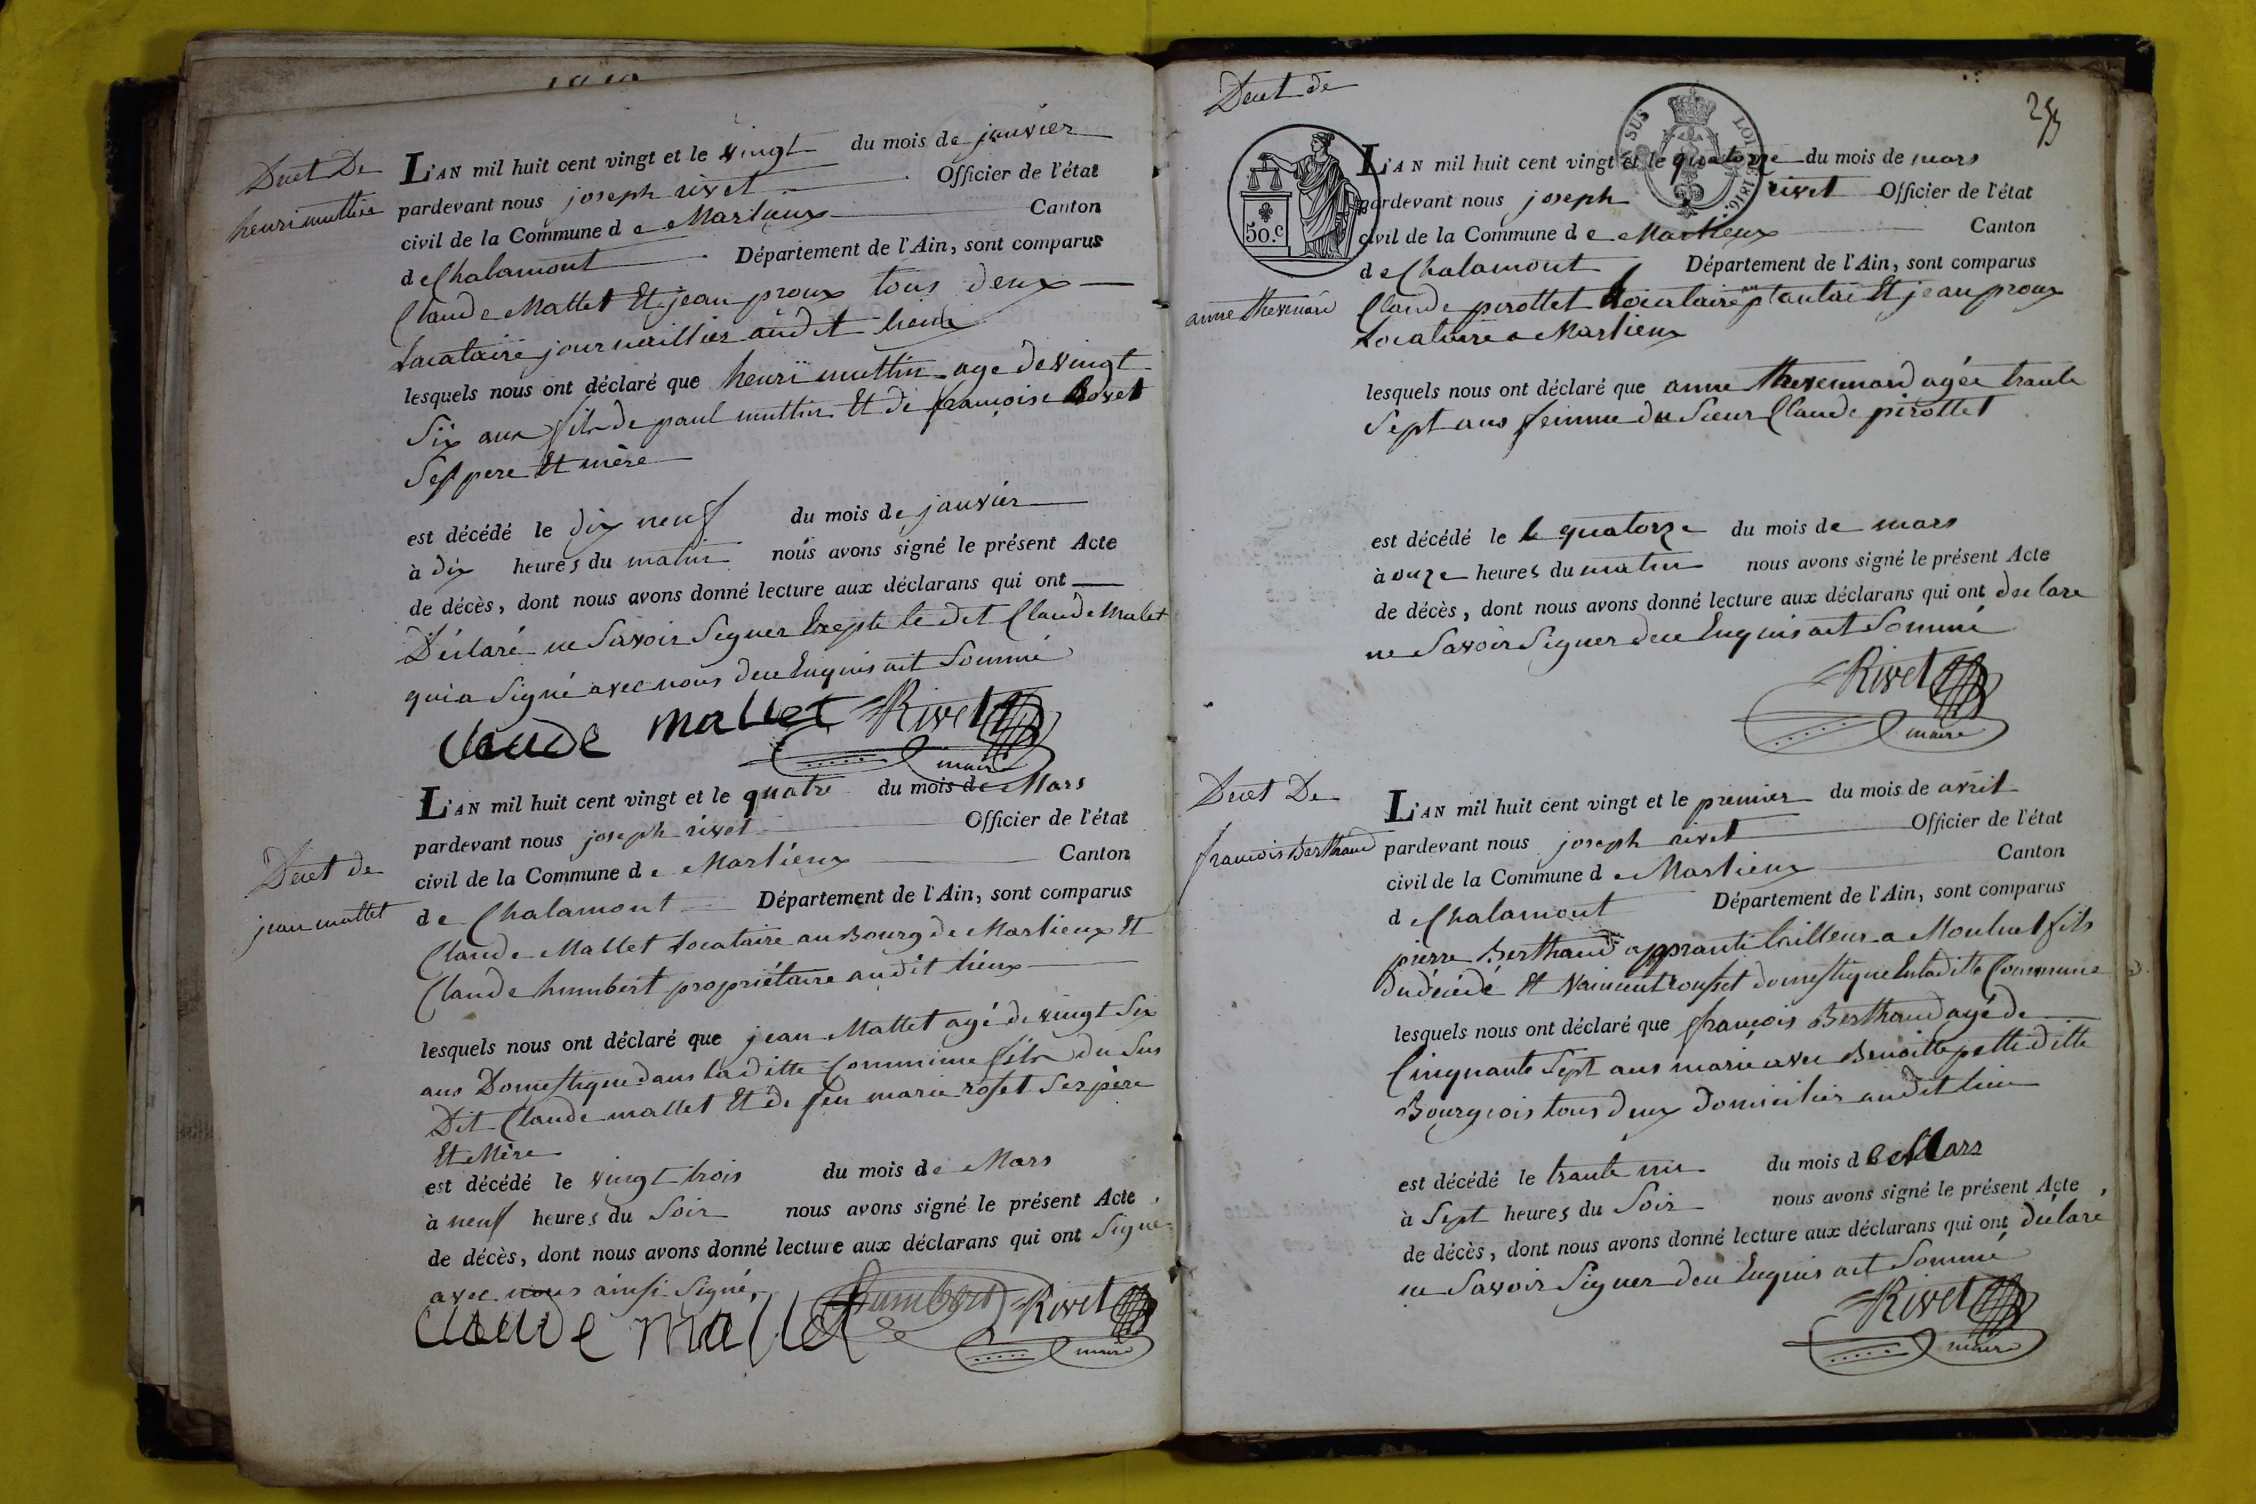 Decet De
henri muttin
L'AN mil huit cent vingt et le vingt du mois de janvier
pardevant nous joseph rivet Officier de l'état
civil de la Commune de Marlieux Canton
de Chalamont Département de l'Ain, sont comparus
Claude Mallet Et jean proux tous deux
Locataire journaillier audit lieux
lesquels nous ont déclaré que henri muttin age de vingt
Six ans fils de paul muttin Et de françoise Bovet
Ses pere Et mère
est décédé le dix neuf du mois de janvier
à dix heures du matin nous avons signé le présent Acte
de décès, dont nous avons donné lecture aux déclarans qui ont
Déclaré ne Savoir Signer Exepte le dit Claude Malet
qui a Signé avec nous dece Enquis ait Sommé
claude mallet Rivet
maire
Decet de
jean mallet
L'AN mil huit cent vingt et le quatre du mois de Mars
pardevant nous joseph rivet Officier de l'état
civil de la Commune de Marlieux Canton
de Chalamont Département de l'Ain, sont comparus
Claude Mallet Locataire au Bourg de Marlieux Et
Claude humbert propriétaire audit lieux
lesquels nous ont déclaré que jean Mallet agé de vingt Six
ans Domestique dans la ditte Commune fils du Sus
Dit Claude mallet Et de feu marie roset Ses père
Et Mère
est décédé le vingt trois du mois de Mars
à neuf heures du Soir nous avons signé le présent Acte
de décès, dont nous avons donné lecture aux déclarans qui ont Signé
avec nous ainsi Signé,
claude mallet humbert Rivet
maire
Decet de
25
SUS LOI DE 1816.
50.c
anne thevenard
L'AN mil huit cent vingt et le quatorze du mois de mars
pardevant nous joseph rivet Officier de l'état
civil de la Commune de Marlieux Canton
de Chalamont Département de l'Ain, sont comparus
Claude pirottet Locataire au plantai Et jean proux
Locataire a Marlieux
lesquels nous ont déclaré que anne thevennard agée trante
Sept ans femme du Sieur Claude pirottet
est décédé le le quatorze du mois de mars
à onze heures du matin nous avons signé le présent Acte
de décès, dont nous avons donné lecture aux déclarans qui ont declare
ne Savoir Signer dece Enquis ait Sommé
Rivet
maire
Decet De
francois Berthaud
L'AN mil huit cent vingt et le premier du mois de avril
pardevant nous joseph rivet Officier de l'état
civil de la Commune de Marlieux Canton
de Chalamont Département de l'Ain, sont comparus
pierre Berthaud appranti tailleur a Montluel fils
du décédé Et Vaincent domestique En la ditte Commune
lesquels nous ont déclaré que françois Berthaud agé de
Cinquante Sept ans marié avec Benoitte petti ditte
Bourgeois tous deux domicilier audit lieu
est décédé le trante un du mois de Mars
à Sept heures du Soir nous avons signé le présent Acte,
de décès, dont nous avons donné lecture aux déclarans qui ont déclaré
ne Savoir Signer dece Enquis ait Sommé
Rivet
maire